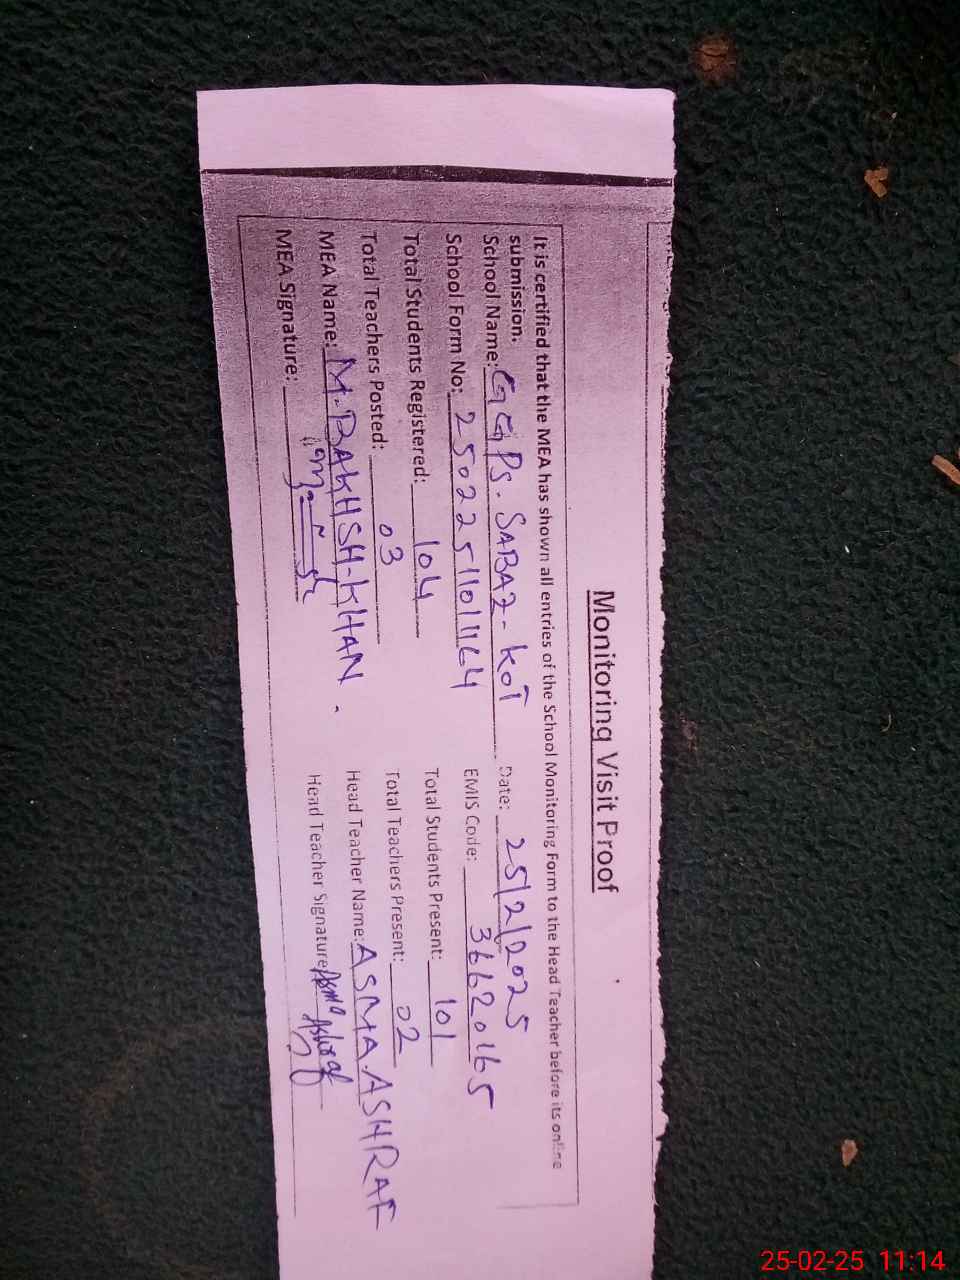 Monitoring Visit Proof
It is certified that the MEA has shown all entries of the School Monitoring Form to the Head Teacher before its online
submission.
School Name: GGPS. SABAZ-KOT Date: 25/2/2025
School Form No: 25022511011164 EMIS Code: 36620165
Total Students Registered: 104 Total Students Present: 101
Total Teachers Posted: 03 Total Teachers Present: 02
MEA Name: M.BAKHSH-KHAN. Head Teacher Name: ASMA.ASHRAF
MEA Signature: Head Teacher Signature: Asma Ashraf
25-02-25 11:14